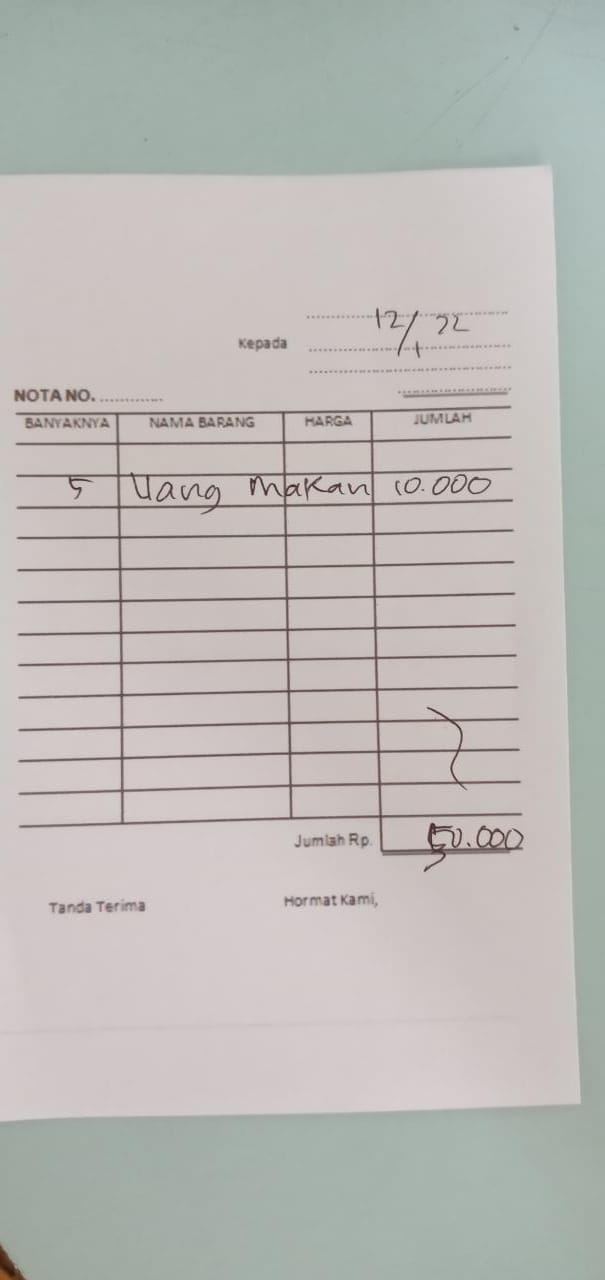 12/1 22
Kepada
NOTA NO.
BANYAKNYA NAMA BARANG HARGA JUMLAH
5 Uang Makan 10.000
Jumlah Rp. 50.000
Tanda Terima Hormat Kami,